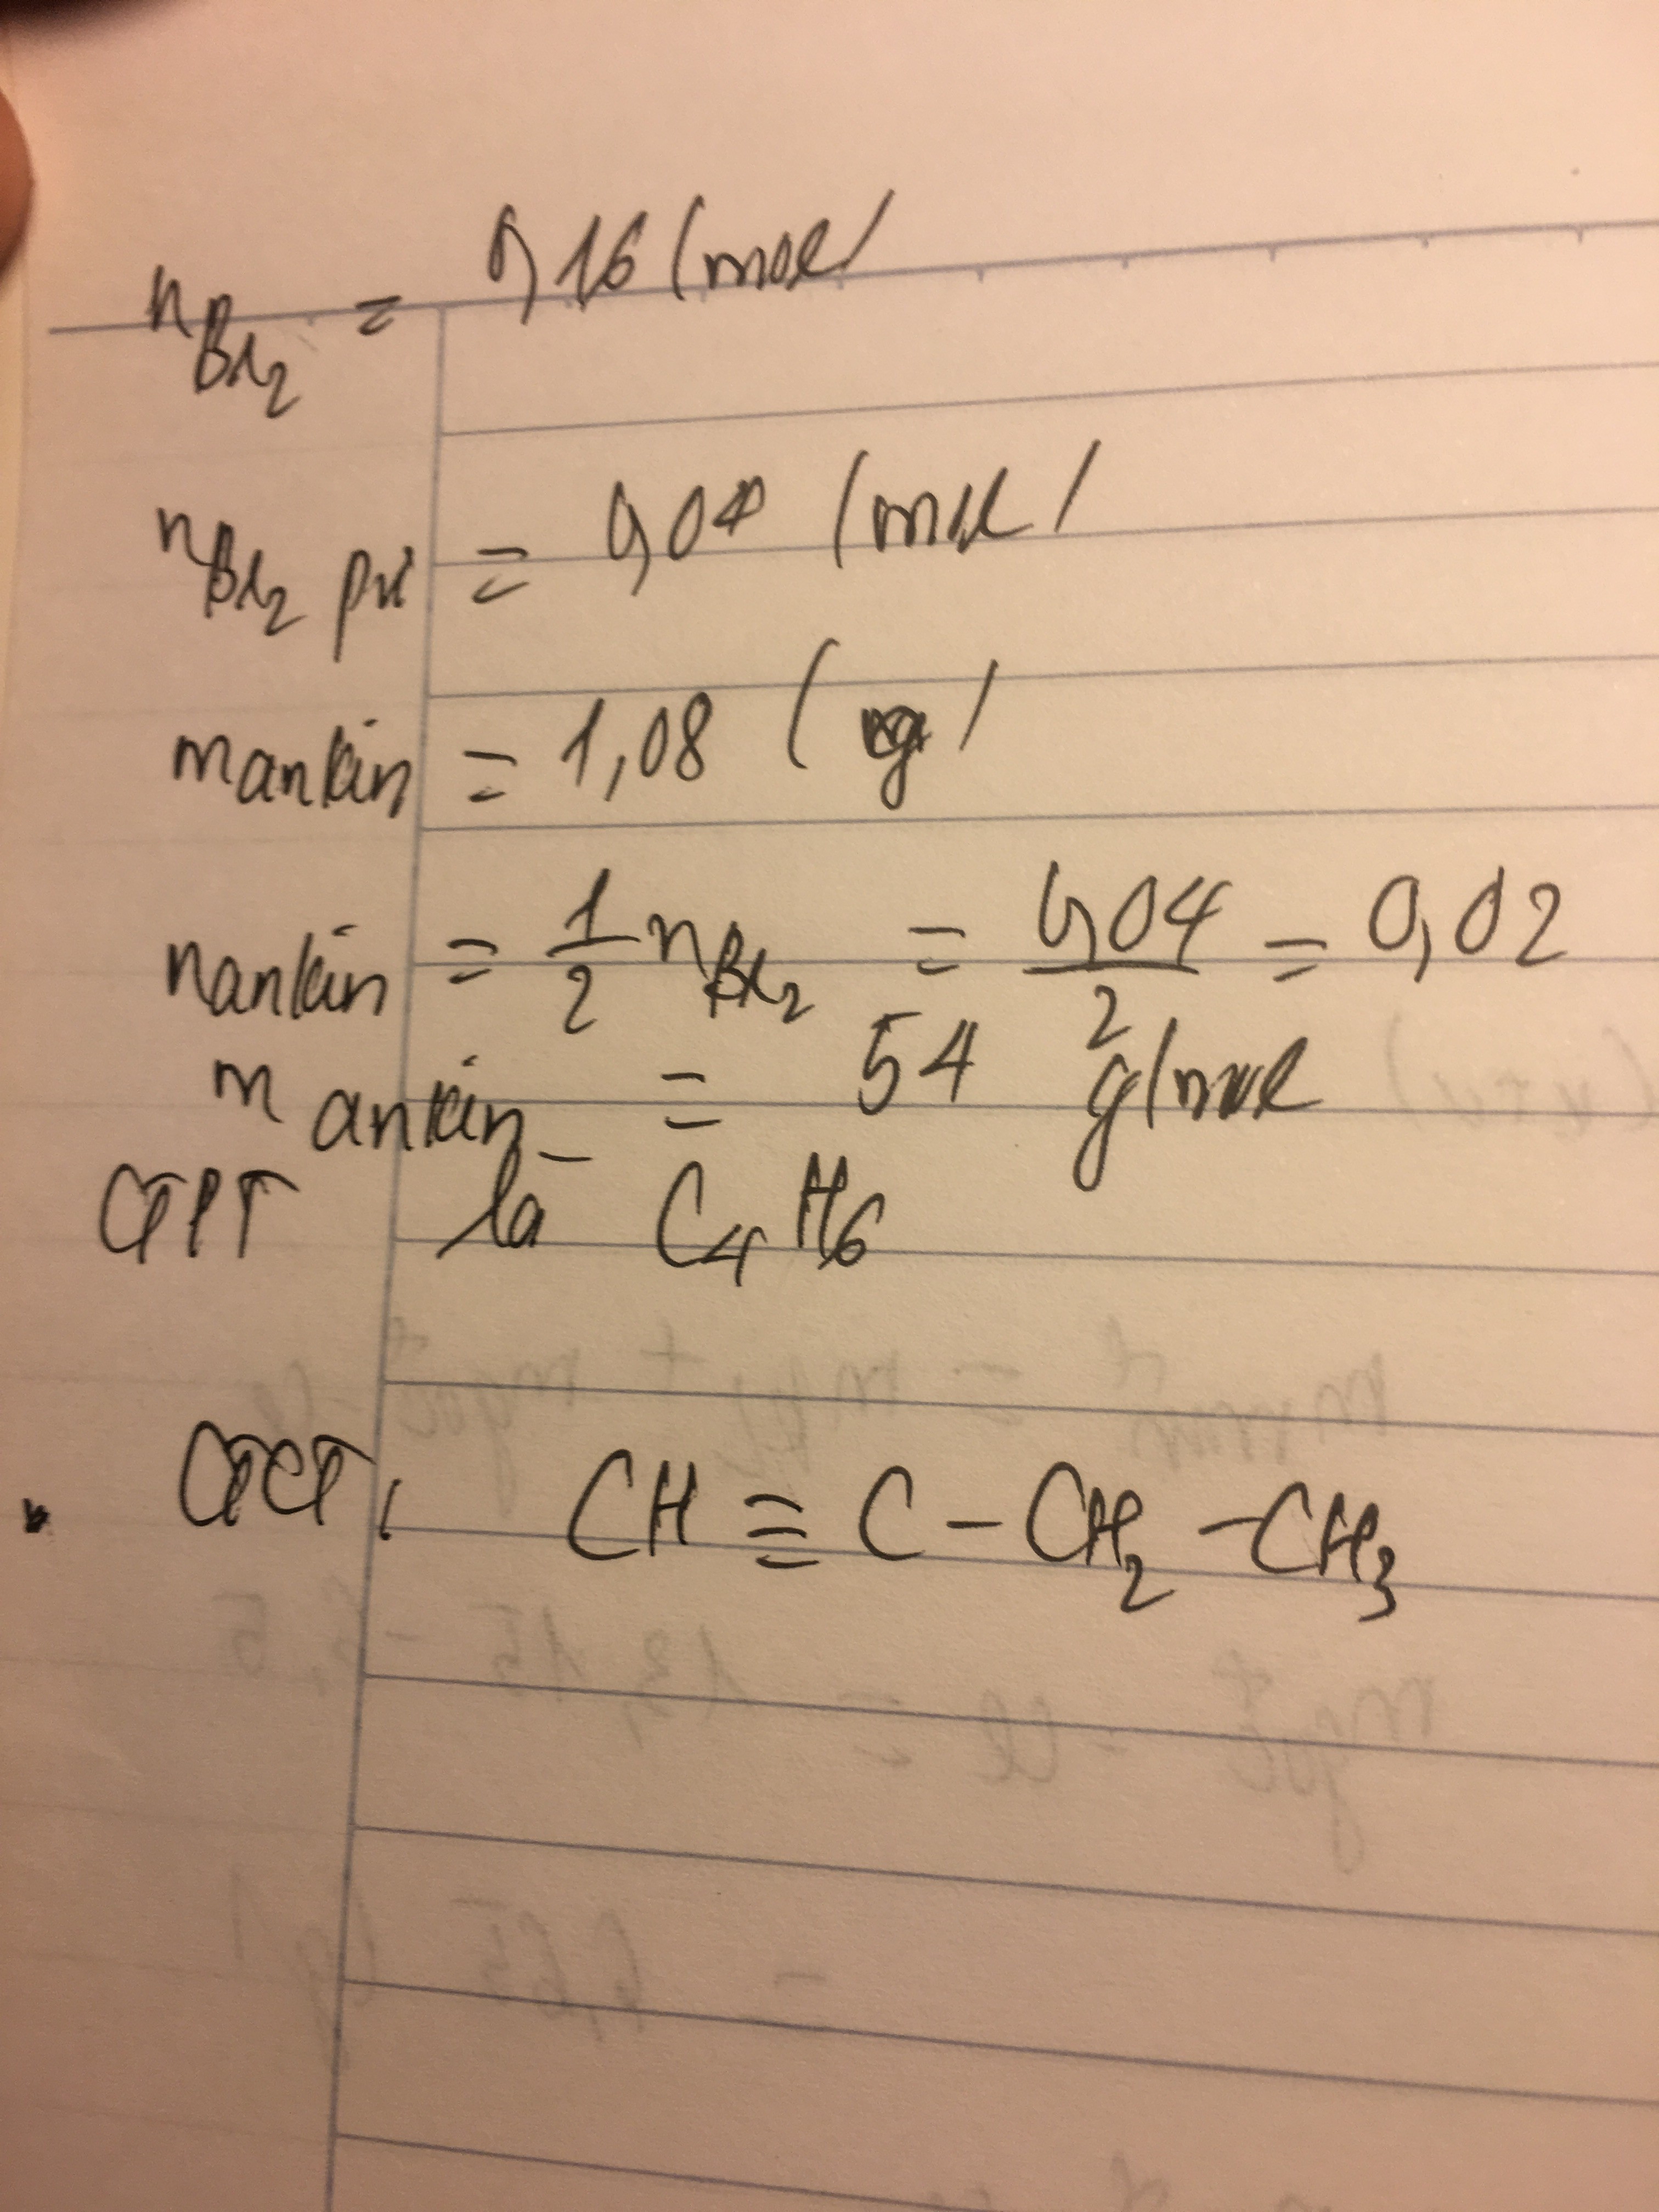 nBr2 = 0,16 (mol)
nBr2 pư = 0,04 (mol)
mankin = 1,08 (g)
nankin = 1/2 nBr2 = 0,04/2 = 0,02
m ankin = 54 g/mol
CTPT là C4H6
CTCT: CH ≡ C - CH2 - CH3